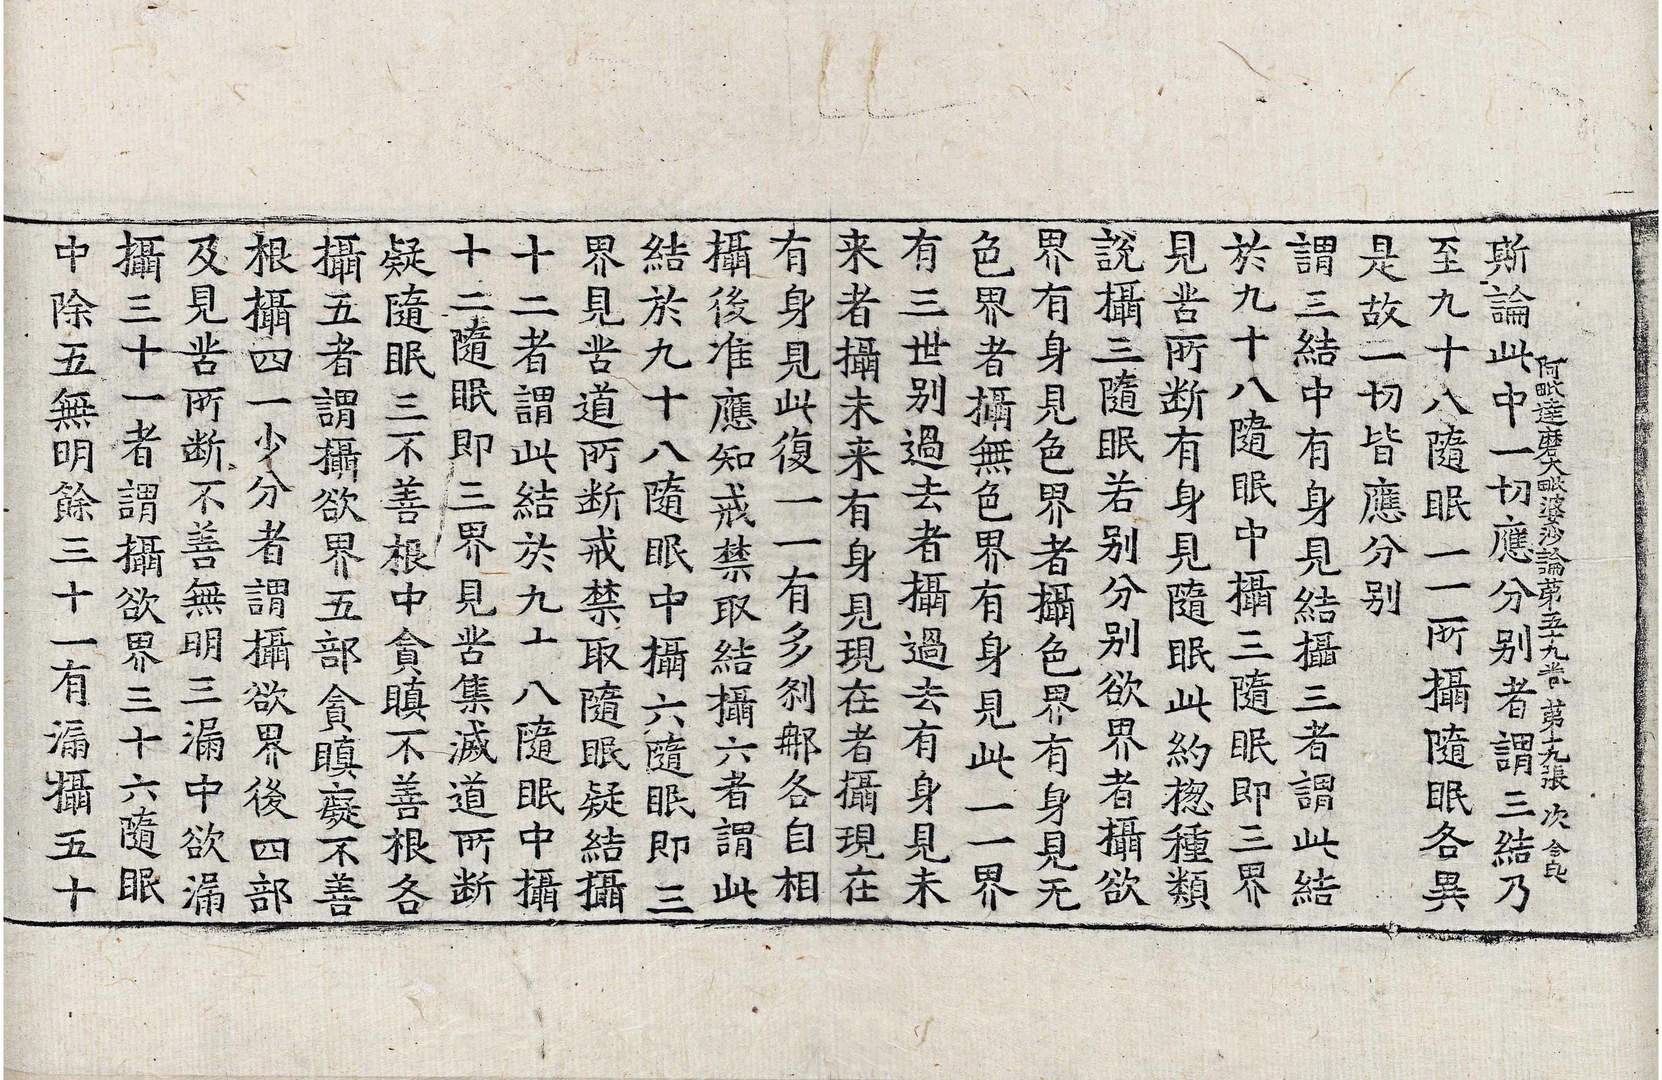 阿毗達磨大毗婆沙論苐五十九卷 苐十九張 次 令良
斯論此中一切應分别者謂三結乃
至九十八隨眠一一所攝隨眠各異
是故一切皆應分别
謂三結中有身見結攝三者謂此結
於九十八隨眠中攝三隨眠即三界
見苦所断有身見隨眠此約揔種類
說攝三隨眠若别分别欲界者攝欲
界有身見色界者攝色界有身見无
色界者攝無色界有身見此一一界
有三世别過去者攝過去有身見未
来者攝未来有身見現在者攝現在
有身見此復一一有多剎那各自相
攝後准應知戒禁取結攝六者謂此
結於九十八隨眠中攝六隨眠即三
界見苦道所断戒禁取隨眠疑結攝
十二者謂此結於九十八隨眠中攝
十二隨眠即三界見苦集滅道所断
疑隨眠三不善根中貪瞋不善根各
攝五者謂攝欲界五部貪瞋癡不善
根攝四一少分者謂攝欲界後四部
及見苦所断不善無明三漏中欲漏
攝三十一者謂攝欲界三十六隨眠
中除五無明餘三十一有漏攝五十